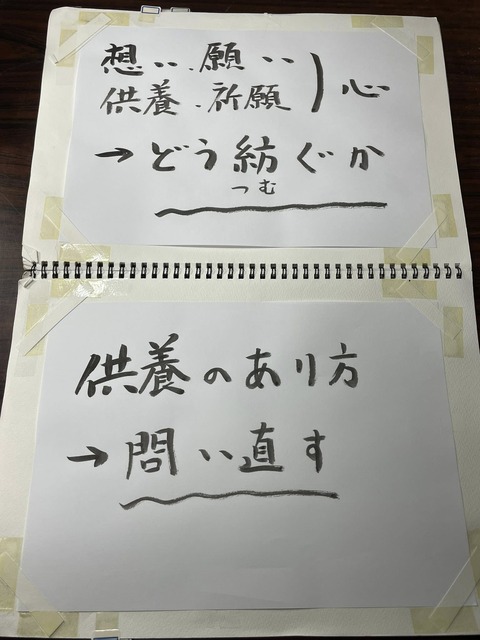 想い、願い
供養、祈願
)心
→どう紡ぐか
つむ
供養のあり方
→問い直す